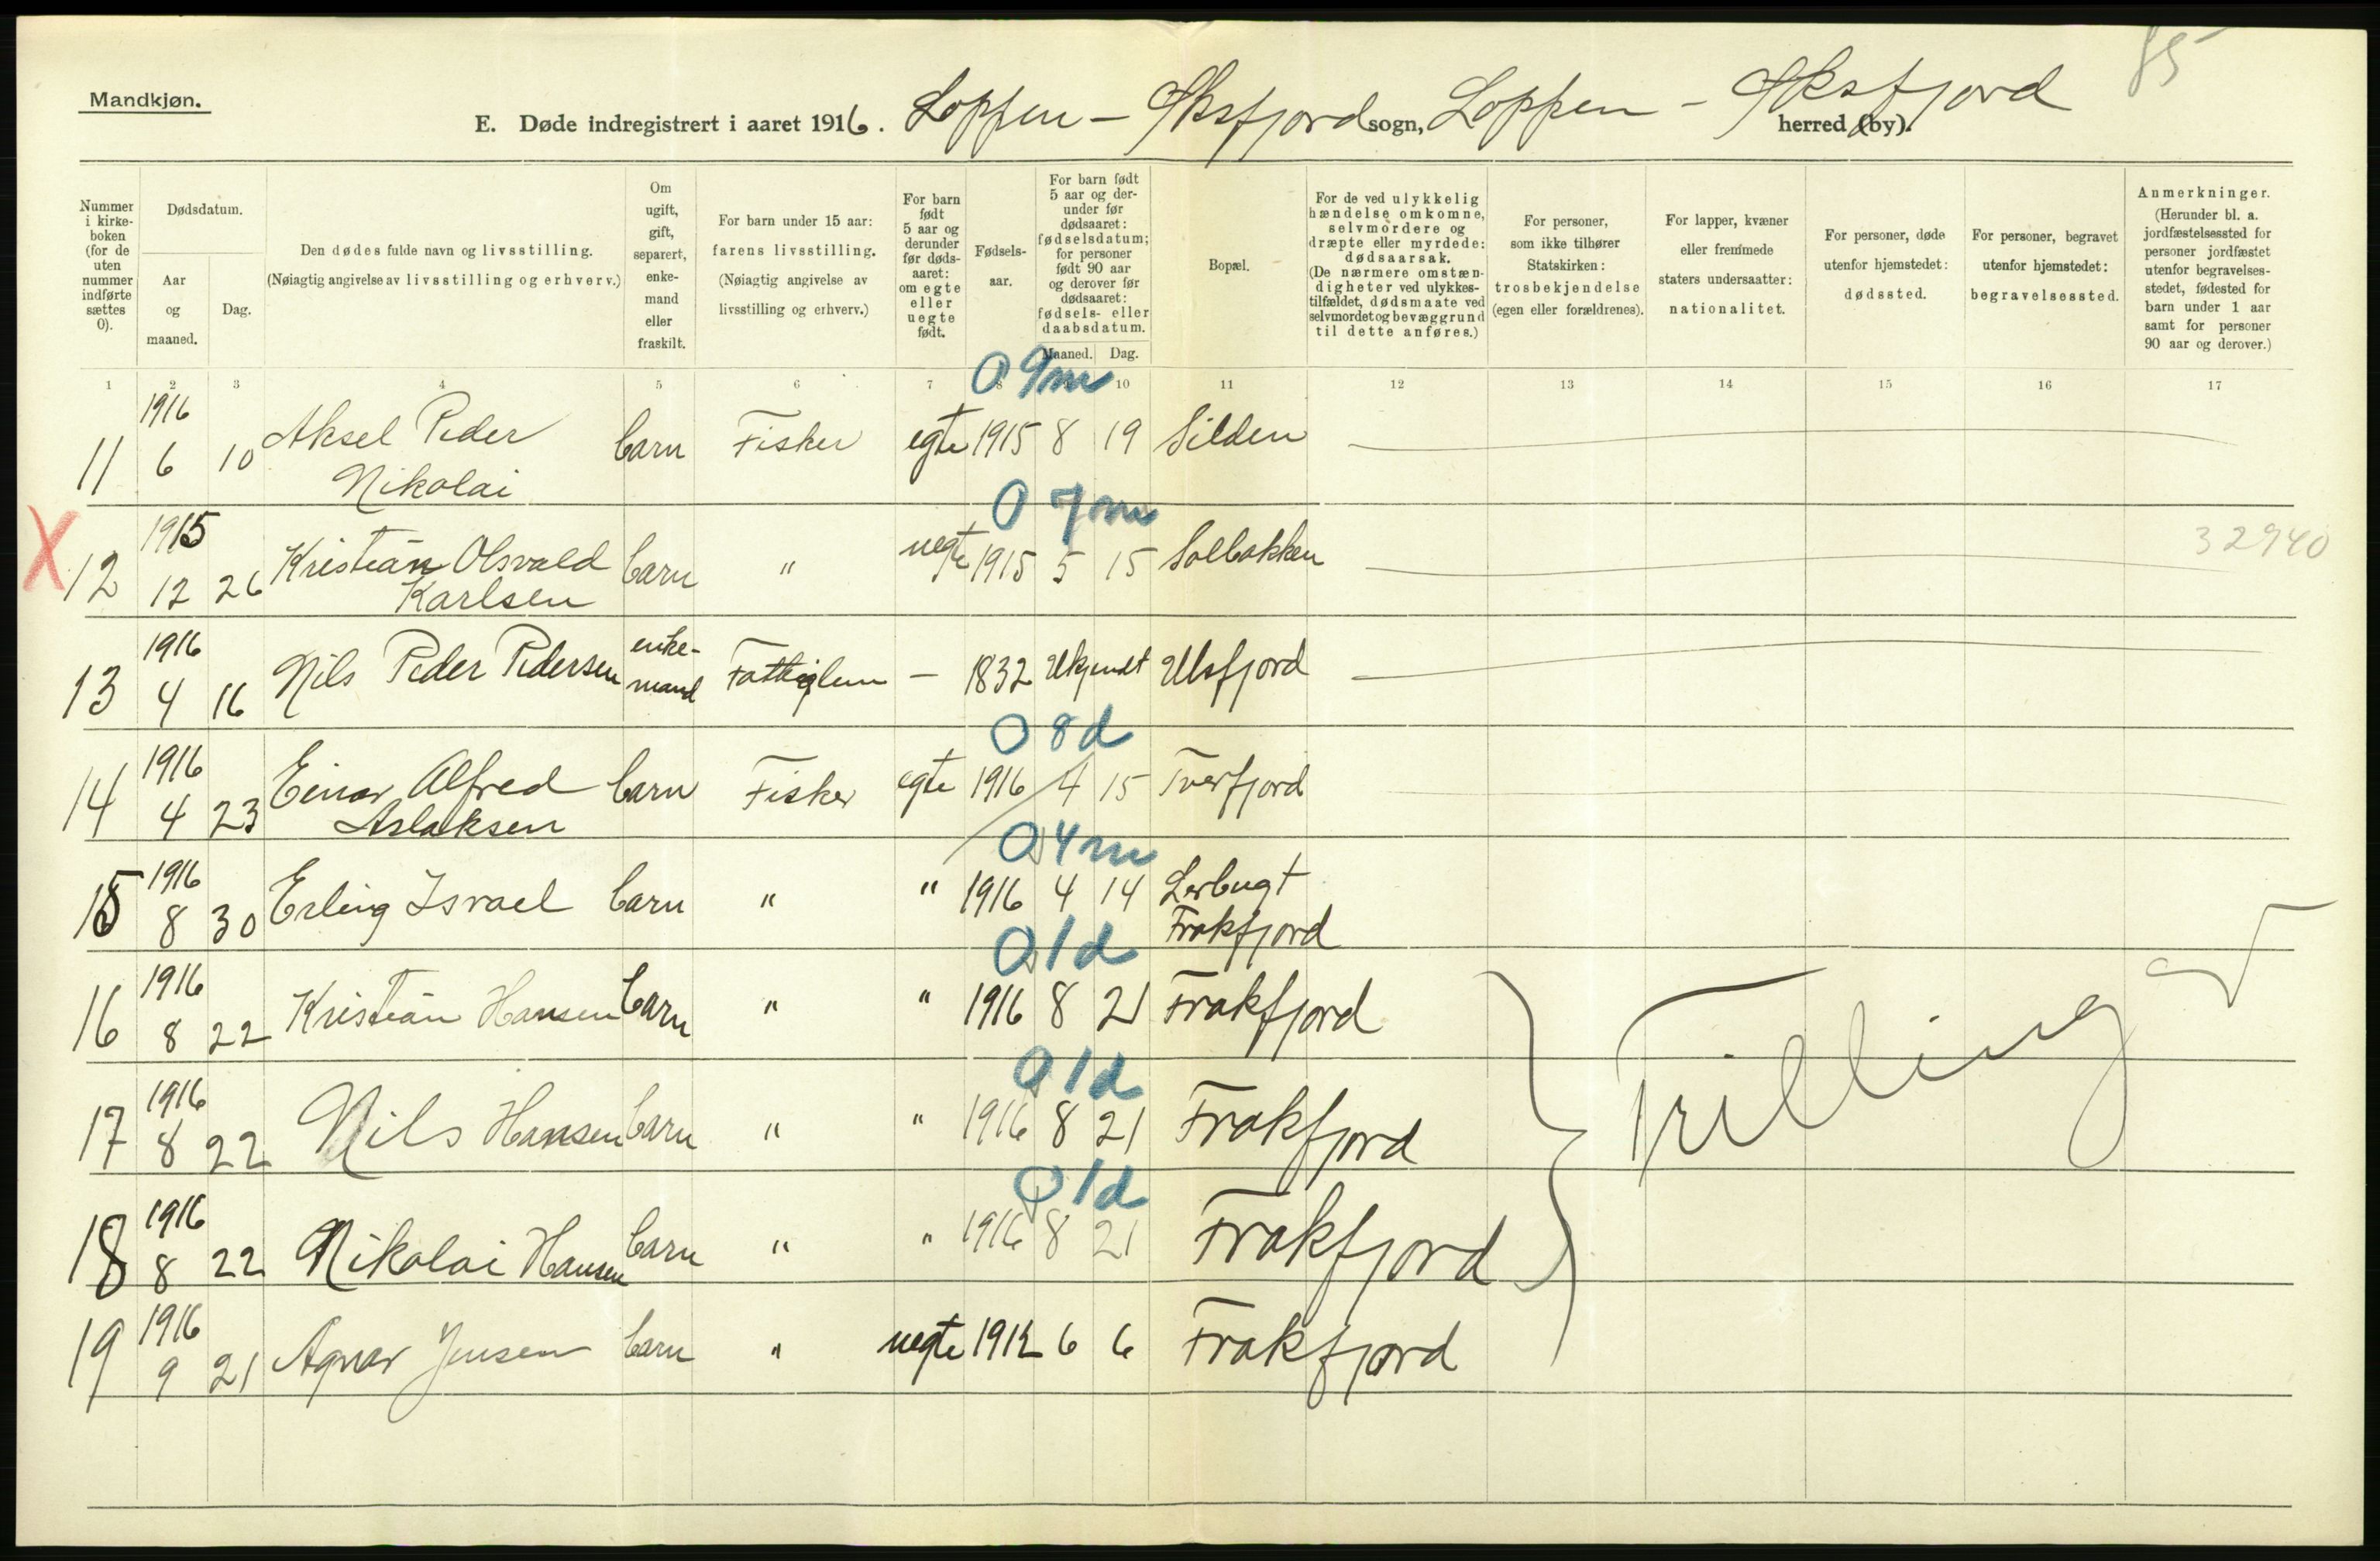 85
Mandkjøn.
E. Døde indregistrert i aaret 1916. Loppen – Øksfjord sogn, Loppen – Øksfjord herred (by).
Nummer i kirkeboken (for de uten nummer indførte sættes 0).
Dødsdatum.
Aar og maaned.
Dag.
Den dødes fulde navn og livsstilling.
(Nøiagtig angivelse av livsstilling og erhverv.)
Om ugift, gift, separert, enkemand eller fraskilt.
For barn under 15 aar: farens livsstilling.
(Nøiagtig angivelse av livsstilling og erhverv.)
For barn født 5 aar og derunder før dødsaaret: om egte eller uegte født.
Fødselsaar.
For barn født 5 aar og derunder før dødsaaret: fødselsdatum; for personer født 90 aar og derover før dødsaaret: fødsels- eller daabsdatum.
Maaned. Dag.
Bopæl.
For de ved ulykkelig hændelse omkomne, selvmordere og dræpte eller myrdede: dødsaarsak.
(De nærmere omstændigheter ved ulykkestilfældet, dødsmaate ved selvmordet og bevæggrund til dette anføres.)
For personer, som ikke tilhører Statskirken: trosbekjendelse (egen eller forældrenes).
For lapper, kvæner eller fremmede staters undersaatter: nationalitet.
For personer, døde utenfor hjemstedet: dødssted.
For personer, begravet utenfor hjemstedet: begravelsessted.
Anmerkninger.
(Herunder bl. a. jordfæstelsessted for personer jordfæstet utenfor begravelsesstedet, fødested for barn under 1 aar samt for personer 90 aar og derover.)
1 2 3 4 5 6 7 8 10 11 12 13 14 15 16 17
0 9m
1916
11 6 10 Aksel Peder barn Fisker egte 1915 8 19 Silden
Nikolai
0 7m
1915
X 12 12 26 Kristian Olsvald barn " uegte 1915 5 15 Solbakken 32940
Karlsen
1916
13 4 16 Nils Peder Pedersen enkemand Fattiglem – 1832 Ukjendt Ulsfjord
0 8d
1916
14 4 23 Einar Alfred barn Fisker egte 1916 4 15 Tverfjord
Aslaksen
0 4m
1916
15 8 30 Erling Israel barn " " 1916 4 14 Lerbugt
Frakfjord
0 1d
1916
16 8 22 Kristian Hansen barn " " 1916 8 21 Frakfjord
0 1d
1916
17 8 22 Nils Hansen barn " " 1916 8 21 Frakfjord
Trilling
0 1d
1916
18 8 22 Nikolai Hansen barn " " 1916 8 21 Frakfjord
1916
19 9 21 Agnar Jensen barn " uegte 1912 6 6 Frakfjord